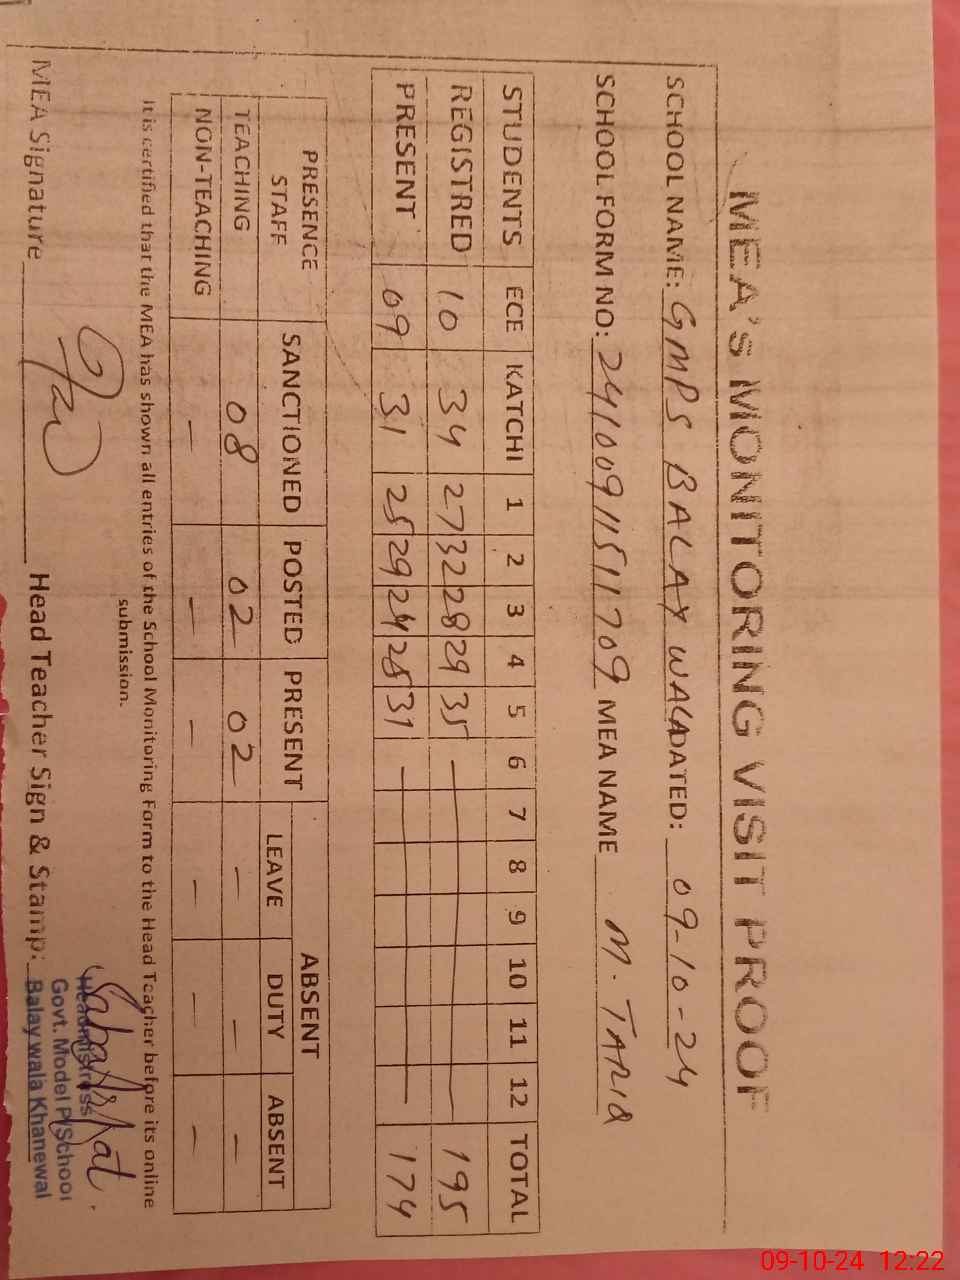 MEA'S MONITORING VISIT PROOF
SCHOOL NAME: GMPS BALAY WALA DATED: 09-10-24
SCHOOL FORM NO: 24100911511709 MEA NAME M. TARIQ
STUDENTS ECE KATCHI 1 2 3 4 5 6 7 8 9 10 11 12 TOTAL
REGISTRED 10 34 27 32 28 29 35 — 195
PRESENT 09 31 25 29 24 25 31 — 174
PRESENCE STAFF SANCTIONED POSTED PRESENT ABSENT
LEAVE DUTY ABSENT
TEACHING 08 02 02 — — —
NON-TEACHING — — — — — —
It is certified that the MEA has shown all entries of the School Monitoring Form to the Head Teacher before its online
submission.
MEA Signature Head Teacher Sign & Stamp:
Headmistress
Govt. Model P/School
Balay wala Khanewal
09-10-24 12:22